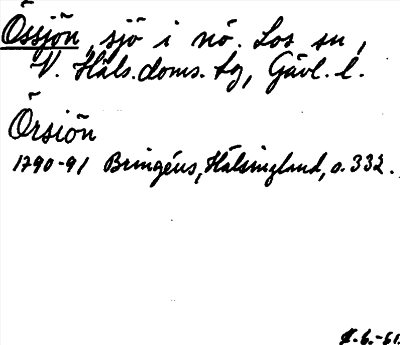 Össjön, sjö i nö. Los sn,
V. Häls. doms. tg, Gävl. l.
Örsiön
1790-91 Bringéus, Hälsingland, s. 332.